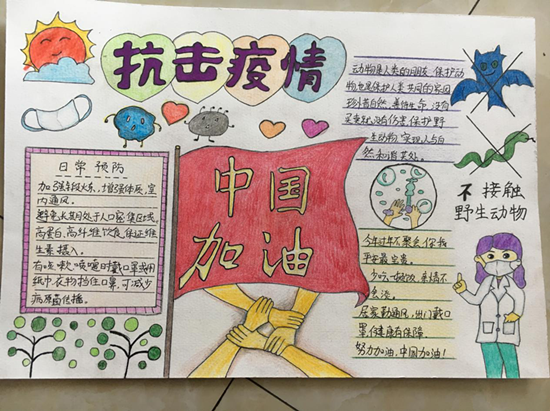 抗击疫情
动物是人类的朋友,保护动
物也是保护人类共同的家园
珍惜自然,善待生命,没有
买卖就没有伤害,保护野
生动物,实现人与自
然和谐共处。
不接触
野生动物
日常预防
加强锻炼,增强体质,室
内通风。
避免长时间处于人口聚集区域,
高蛋白,高纤维饮食,保证维
生素摄入。
有咳嗽,喷嚏时戴口罩或用
纸巾,衣物挡住口鼻,可减少
病原菌传播。
中国
加油
今年过年不聚会,你我
平安最重要。
少吃一顿饭,亲情不
会淡。
居家勤通风,出门戴口
罩,健康有保障。
努力加油,中国加油!